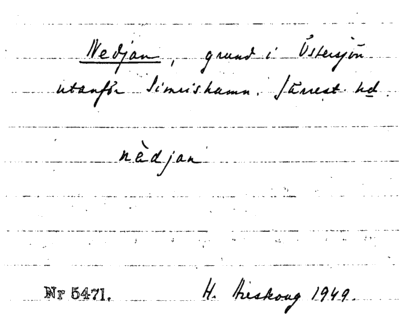 Nedjan, grund i Östersjön
utanför Simrishamn. Järrest. hd.
nèdjan
Nr 5471. H. 1949.